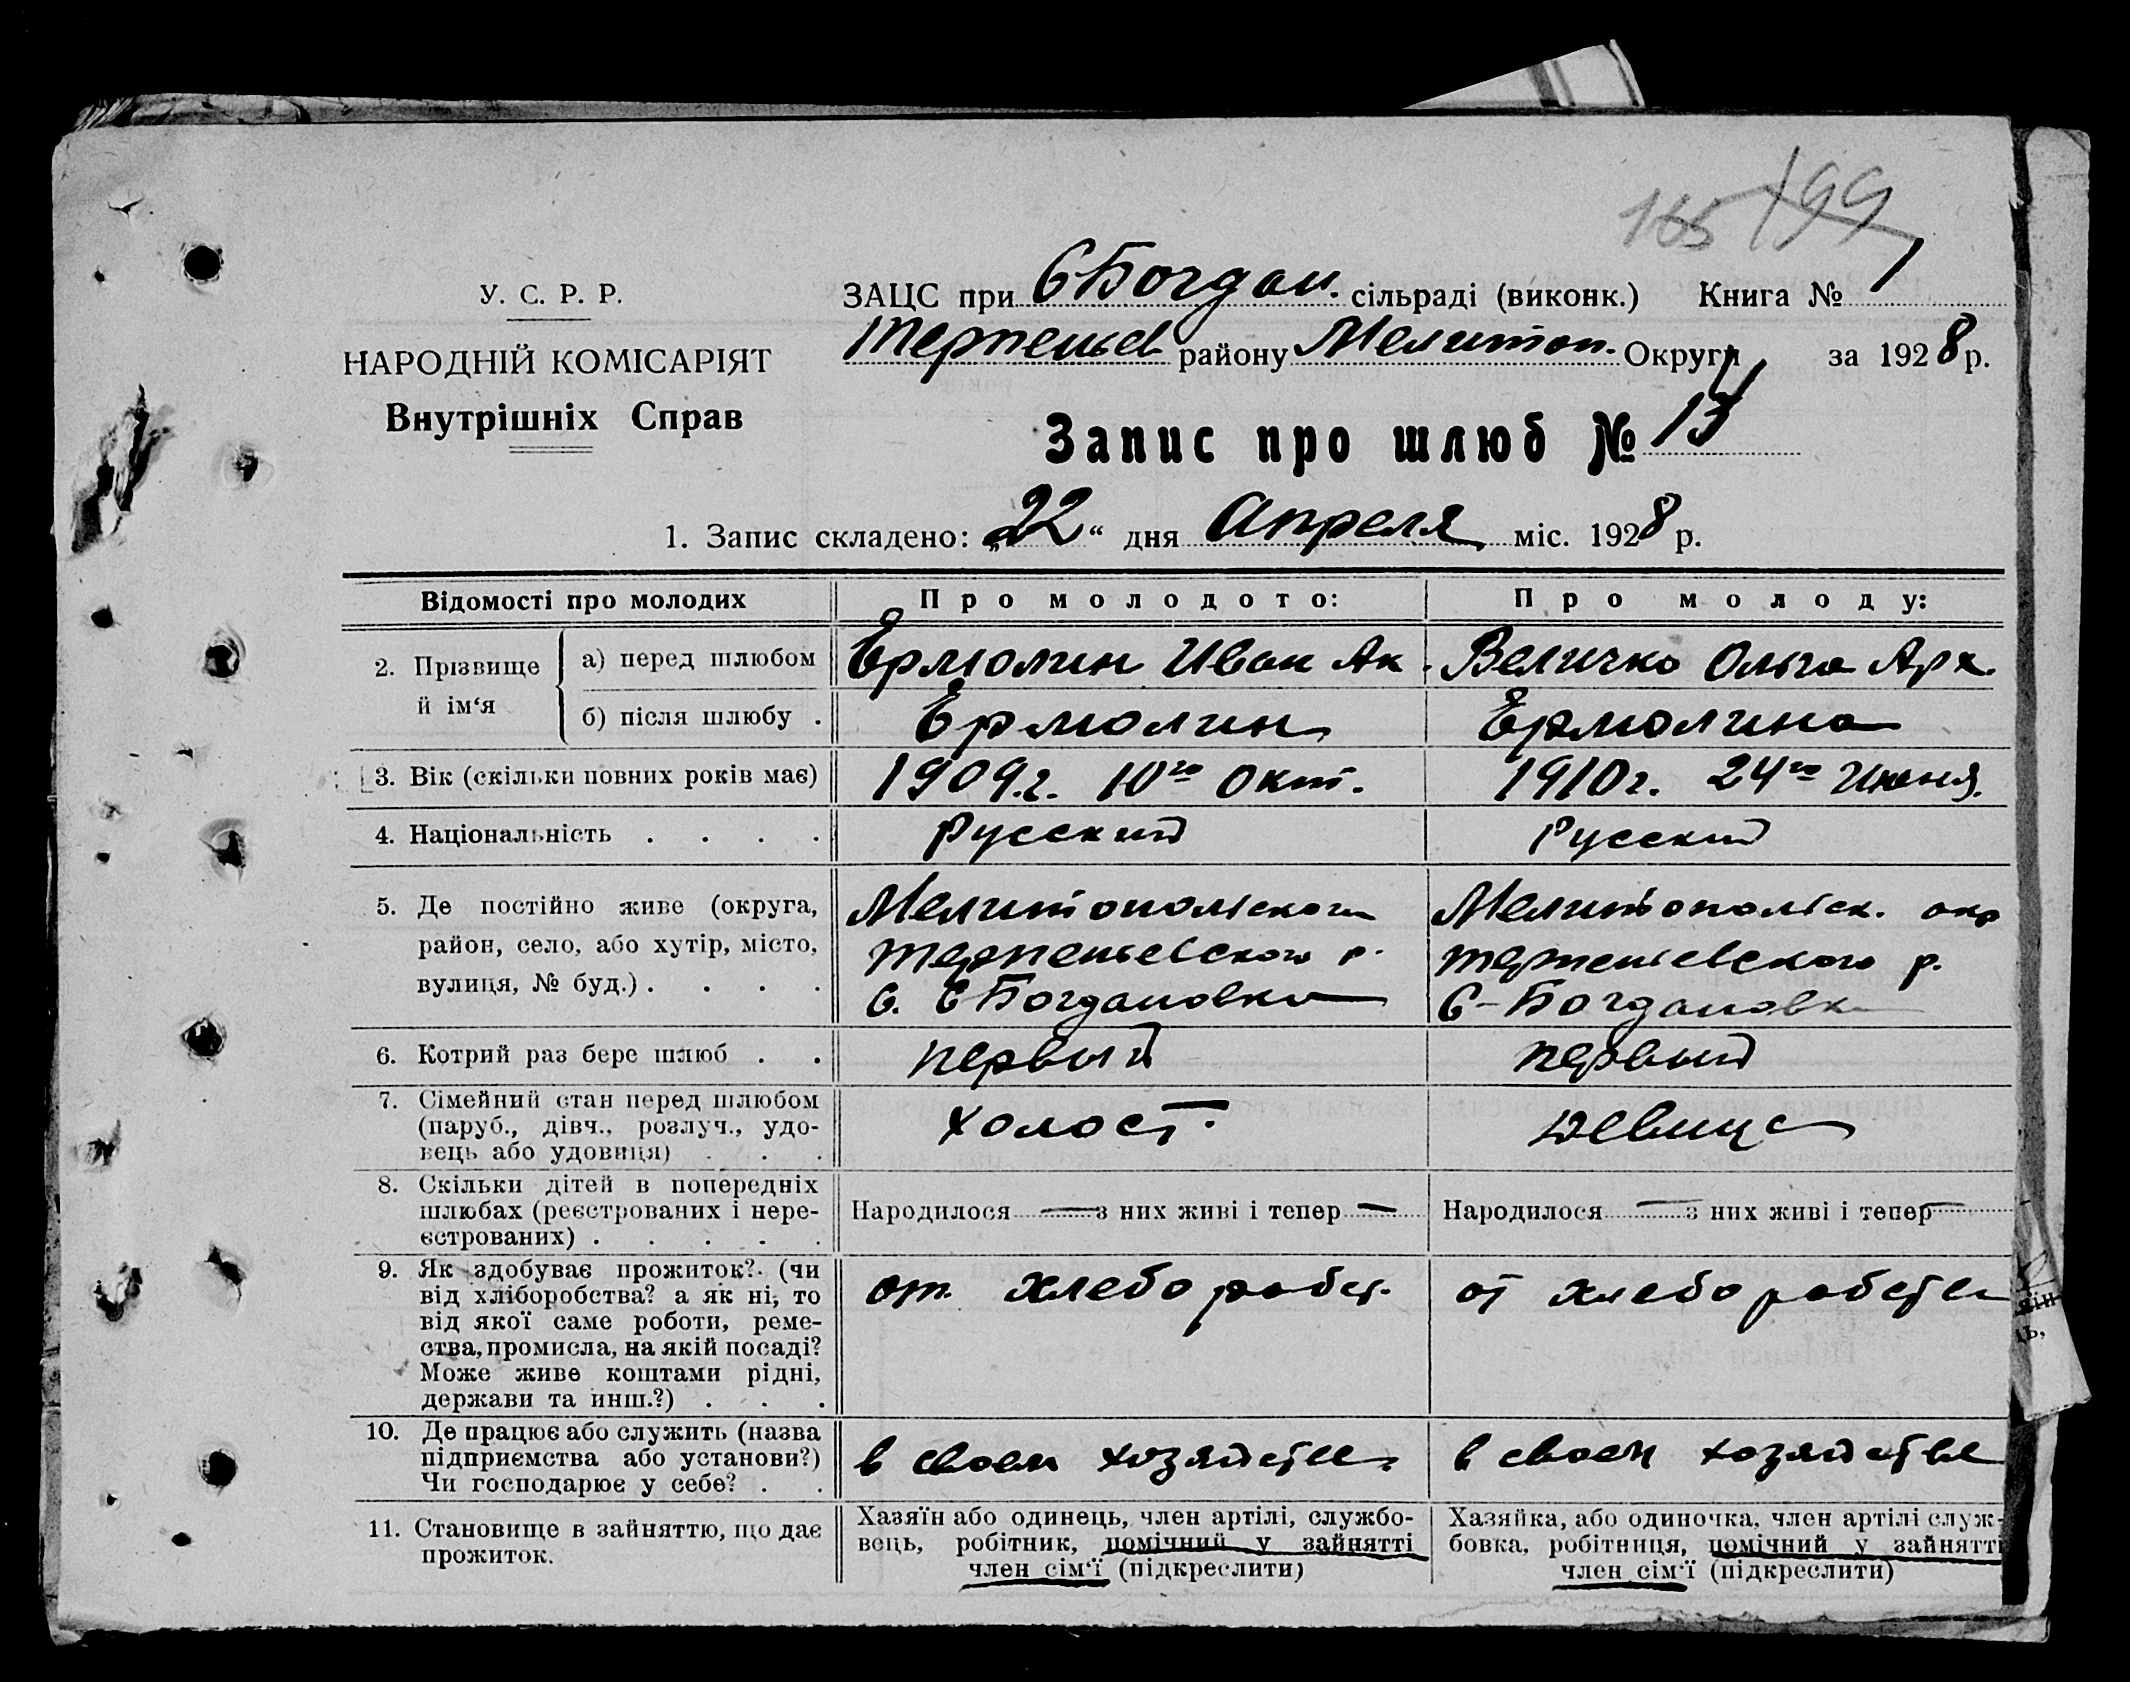 165 199
У. С. Р. Р.
НАРОДНІЙ КОМІСАРІЯТ
Внутрішніх Справ
ЗАЦС при С Богдан. сільраді (виконк.) Книга № 1
Терпеньев району Мелитоп. Округи за 1928 р.
Запис про шлюб № 13
1. Запис складено: „22“ дня Апреля міс. 1928 р.
Відомості про молодих
Про молодого:
Про молоду:
2. Прізвище й ім‘я
а) перед шлюбом
Ермолин Иван Ак.
Величко Ольга Арх.
б) після шлюбу .
Ермолин
Ермолина
3. Вік (скільки повних років має)
1909.г. 10го Окт.
1910г. 24го Июня.
4. Національність . . . .
Русский
Русский
5. Де постійно живе (округа,
район, село, або хутір, місто,
вулиця, № буд.) . . . .
Мелитопольского
Терпеньевского р.
С. С Богдановка
Мелитопольск. окр
Терпеньевского р.
С-Богдановка
6. Котрий раз бере шлюб . .
первый
первый
7. Сімейний стан перед шлюбом
(паруб., дівч., розлуч., удо-
вець або удовиця) . . .
холост.
девица
8. Скільки дітей в попередніх
шлюбах (реєстрованих і нере-
єстрованих) . . . . .
Народилося — з них живі і тепер —
Народилося — з них живі і тепер —
9. Як здобуває прожиток? (чи
від хліборобства? а як ні, то
від якої саме роботи, реме-
ства, промисла, на якій посаді?
Може живе коштами рідні,
держави та инш.?) . . .
от хлеборабот.
от хлебоработва
10. Де працює або служить (назва
підприємства або установи?)
Чи господарює у себе? . .
в своем хозяйстве
в своем хозяйстве
11. Становище в зайняттю, що дає
прожиток.
Хазяїн або одинець, член артілі, службо-
вець, робітник, помічний у зайнятті
член сім‘ї (підкреслити)
Хазяйка, або одиночка, член артілі служ-
бовка, робітниця, помічний у зайнятті
член сім‘ї (підкреслити)